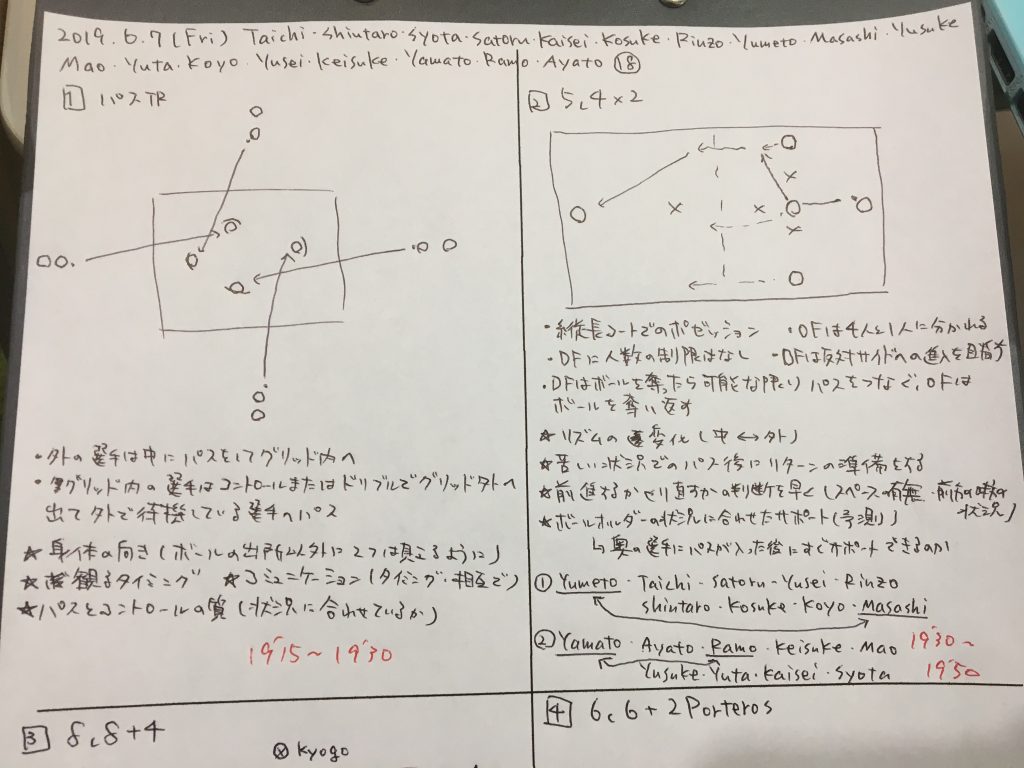 2019.6.7(Fri) Taichi・Shintaro・Syota・Satoru・Kaisei・Kosuke・Rinzo・Yumeto・Masashi・Yusuke
Mao・Yuta・Koyo・Yusei・Keisuke・Yamato・Ramo・Ayato ⑱
1 パスTR
・外の選手は中にパスをしてグリッド内へ
・グリッド内の選手はコントロールまたはドリブルでグリッド外へ
出て外で待機している選手へパス
★身体の向き(ボールの出所以外に2つは見えるように)
★観るタイミング ★コミュニケーション(タイミング・相互で)
★パスとコントロールの質(状況に合わせているか)
19'15〜19'30
2 5、4×2
・縦長コートでのポゼッション ・OFは4人と1人に分かれる
・DFに人数の制限はなし ・OFは反対サイドへの進入を目指す
・DFはボールを奪ったら可能な限りパスをつなぐ、OFは
ボールを奪い返す
★リズムの変化(中↔外)
★苦しい状況でのパス後にリターンの準備をする
★前進するかやり直すかの判断を早く(スペースの有無・前方の味方の
状況)
★ボールホルダーの状況に合わせたサポート(予測)
↳奥の選手にパスが入った後にすぐサポートできるのか
① Yumeto・Taichi・Satoru・Yusei・Rinzo
Shintaro・Kosuke・Koyo・Masashi
② Yamato・Ayato・Ramo・Keisuke・Mao
Yusuke・Yuta・Kaisei・Syota
19'30〜
19'50
3 8、8+4
ⓧ Kyogo
4 6、6+2Porteros